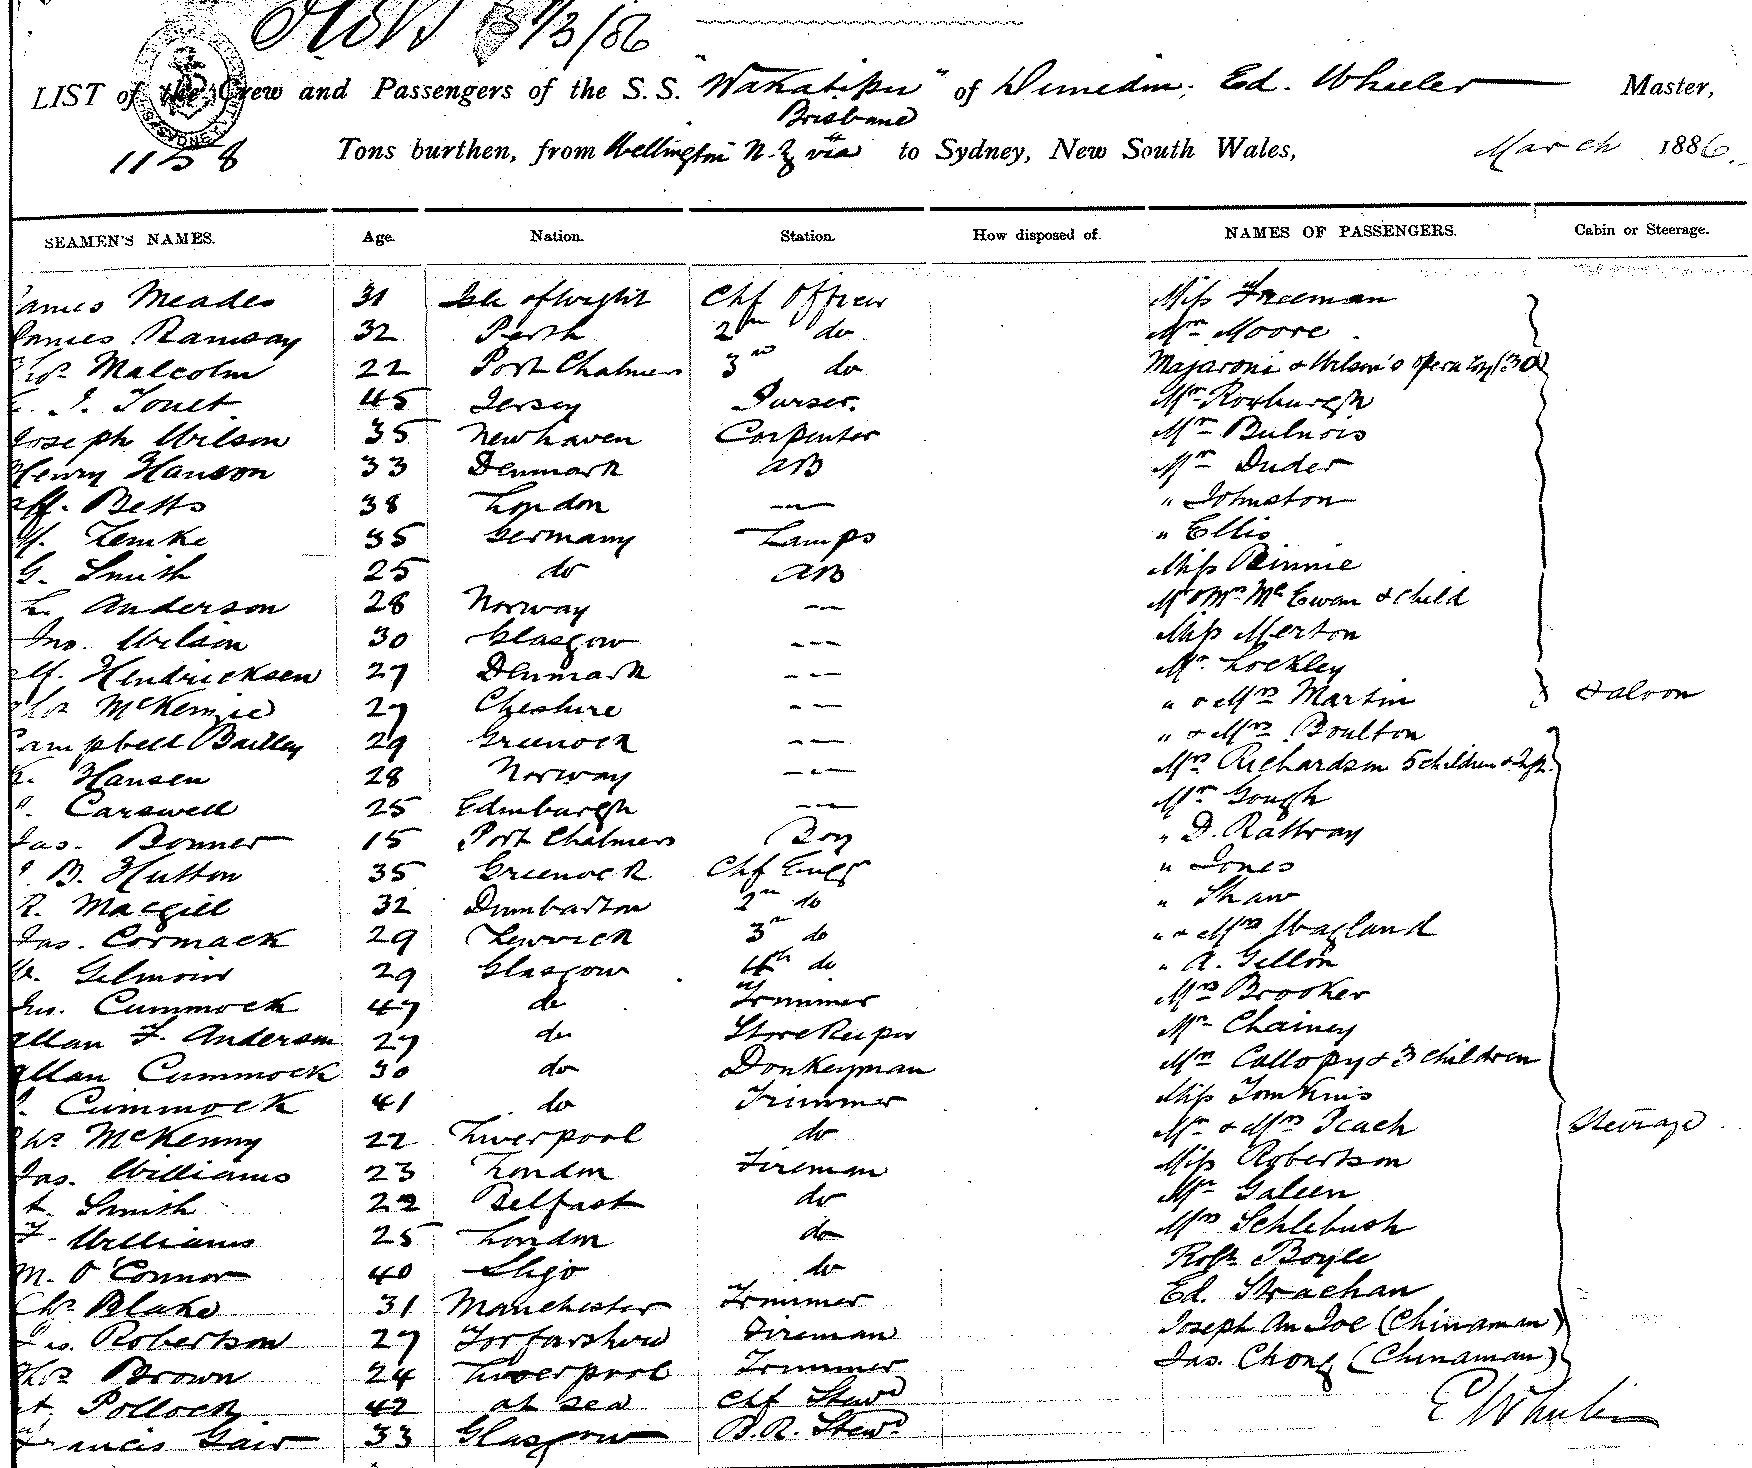 3/3/86
LIST of the Crew and Passengers of the S.S. "Wakatipu" of Dunedin, Ed. Wheeler Master,
Brisbane
1158 Tons burthen, from Wellington N.Z via to Sydney, New South Wales, March 1886.
SEAMEN'S NAMES. Age. Nation. Station. How disposed of. NAMES OF PASSENGERS. Cabin or Steerage.
James Meades 31 Isle of Wight Chf Officer Miss Freeman
James Ramsay 32 Perth 2nd do Mrs Moore
Thos Malcolm 22 Port Chalmers 3rd do Majaroni & Wilson's Opera Coy (30)
J. Touet 45 Jersey Purser. Mr Roxburgh
Joseph Wilson 35 Newhaven Carpenter Mr Bulnois
Henry Hanson 33 Denmark AB Mr Duder
Betts 38 London — " Johnston
Lemke 35 Germany Lamps " Ellis
G. Smith 25 do AB Miss Binnie
L. Anderson 28 Norway -- Mr & Mrs McEwan & child
Jno. Wilson 30 Glasgow -- Miss Merton
Hendricksen 27 Denmark -- Mr Lockley
Chas McKenzie 27 Cheshire -- " & Mrs Martin Saloon
Campbell Bailley 29 Greenock -- " & Mrs Boulton
Hansen 28 Norway -- Mrs Richardson 5 children & Inft.
Carswell 25 Edinburgh -- Mr Gough
Jas. Bonner 15 Port Chalmers Boy " D. Rattray
B. Hutton 35 Greenock Chf Engr " Jones
R. Macgill 32 Dumbarton 2nd do " Shaw
Jas. Cormack 29 Lerwick 3rd do " & Mrs Wagland
Gilmour 29 Glasgow 4th do " A. Gellon
Jno. Cummock 47 do Trimmer Mrs Brooker
Allan F. Anderson 27 do Storekeeper Mr Chainey
Allan Cummock 30 do Donkeyman Mrs Collopy & 3 children
Cummock 41 do Trimmer Miss Tomkins
Chas McKenny 22 Liverpool do Mr & Mrs Peach Steerage
Jas. Williams 23 London Fireman Miss Robertson
Smith 22 Belfast do Mr Galeen
F. Williams 25 London do Mrs Schlebush
M. O'Connor 40 Sligo do Robt Boyle
Chs Blake 31 Manchester Trimmer Ed. Strachan
Jas. Robertson 27 Forfarshire Fireman Joseph Au Joe (Chinaman)
Thos Brown 24 Liverpool Trimmer Jas. Chong (Chinaman)
Pollock 42 at sea Chf Stewd
Francis Gair 33 Glasgow B.R. Stewd E Wheeler